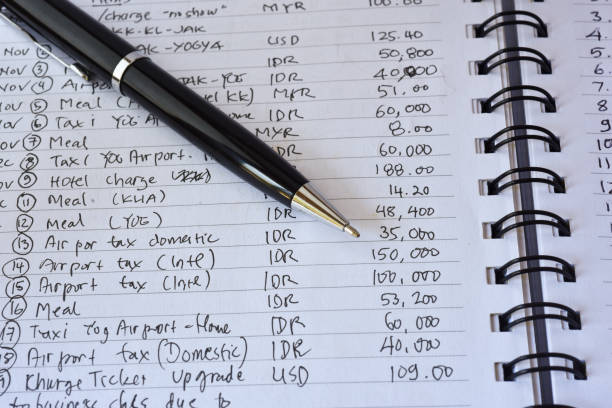 /charge "no show" MYR 100.00
KK-KL-JAK
Nov ② -YOGYA USD 125.40
Nov ③ IDR 50,800
Nov ④ Airport JAK-YOG IDR 40,000
Nov ⑤ Meal KK) MYR 51.00
Nov ⑥ Taxi YOG IDR 60,000
⑦ Meal MYR 8.00
⑧ Taxi YOG Airport IDR 60,000
⑨ Hotel charge 188.00
⑪ Meal (KUA) 14.20
⑫ Meal (YOG) IDR 48,400
⑬ Airpor tax domestic IDR 35,000
⑭ Airport tax (Intl) IDR 150,000
⑮ Airport tax (Intl) IDR 100,000
⑯ Meal IDR 53,200
17 Taxi Yog Airport - Home IDR 60,000
18 Airport tax (Domestic) IDR 40,000
Kharge Ticket upgrade USD 109.00
to business due to